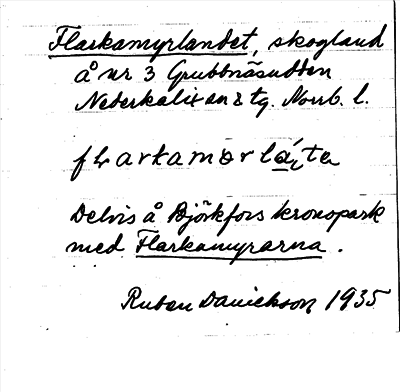 Flarkamyrlandet, skogland
å nr 3 Grubbnäsudden
Nederkalix an & tg. Norrb. l.
flarkamørláṇta
Delvis å Björkfors kronopark
med Flarkamyrarna.
Ruben Danielsson 1935